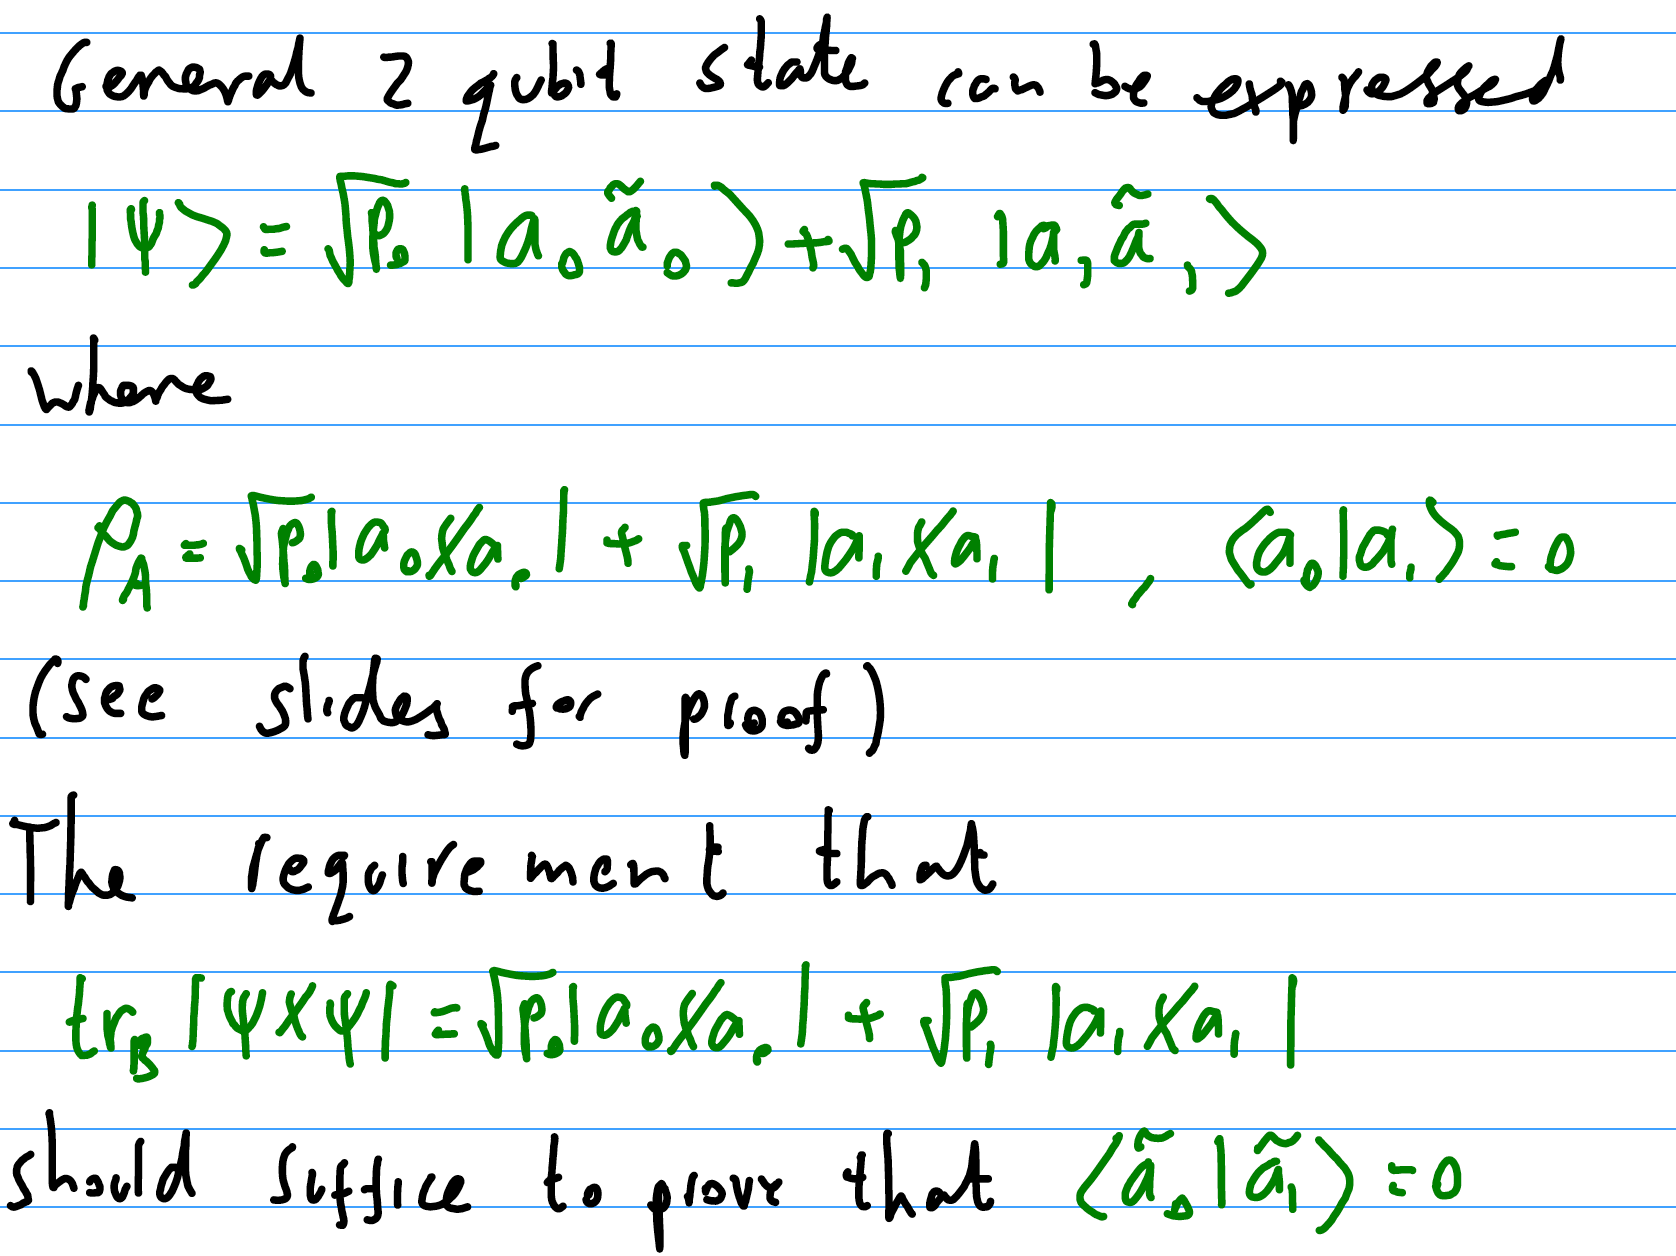 General 2 qubit state can be expressed
|ψ⟩ = √p₀ |a₀ ã₀⟩ + √p₁ |a₁ ã₁⟩
where
ρ_A = √p₀ |a₀⟩⟨a₀| + √p₁ |a₁⟩⟨a₁| , ⟨a₀|a₁⟩ = 0
(see slides for proof)
The requirement that
tr_B |ψ⟩⟨ψ| = √p₀ |a₀⟩⟨a₀| + √p₁ |a₁⟩⟨a₁|
should suffice to prove that ⟨ã₀|ã₁⟩ = 0